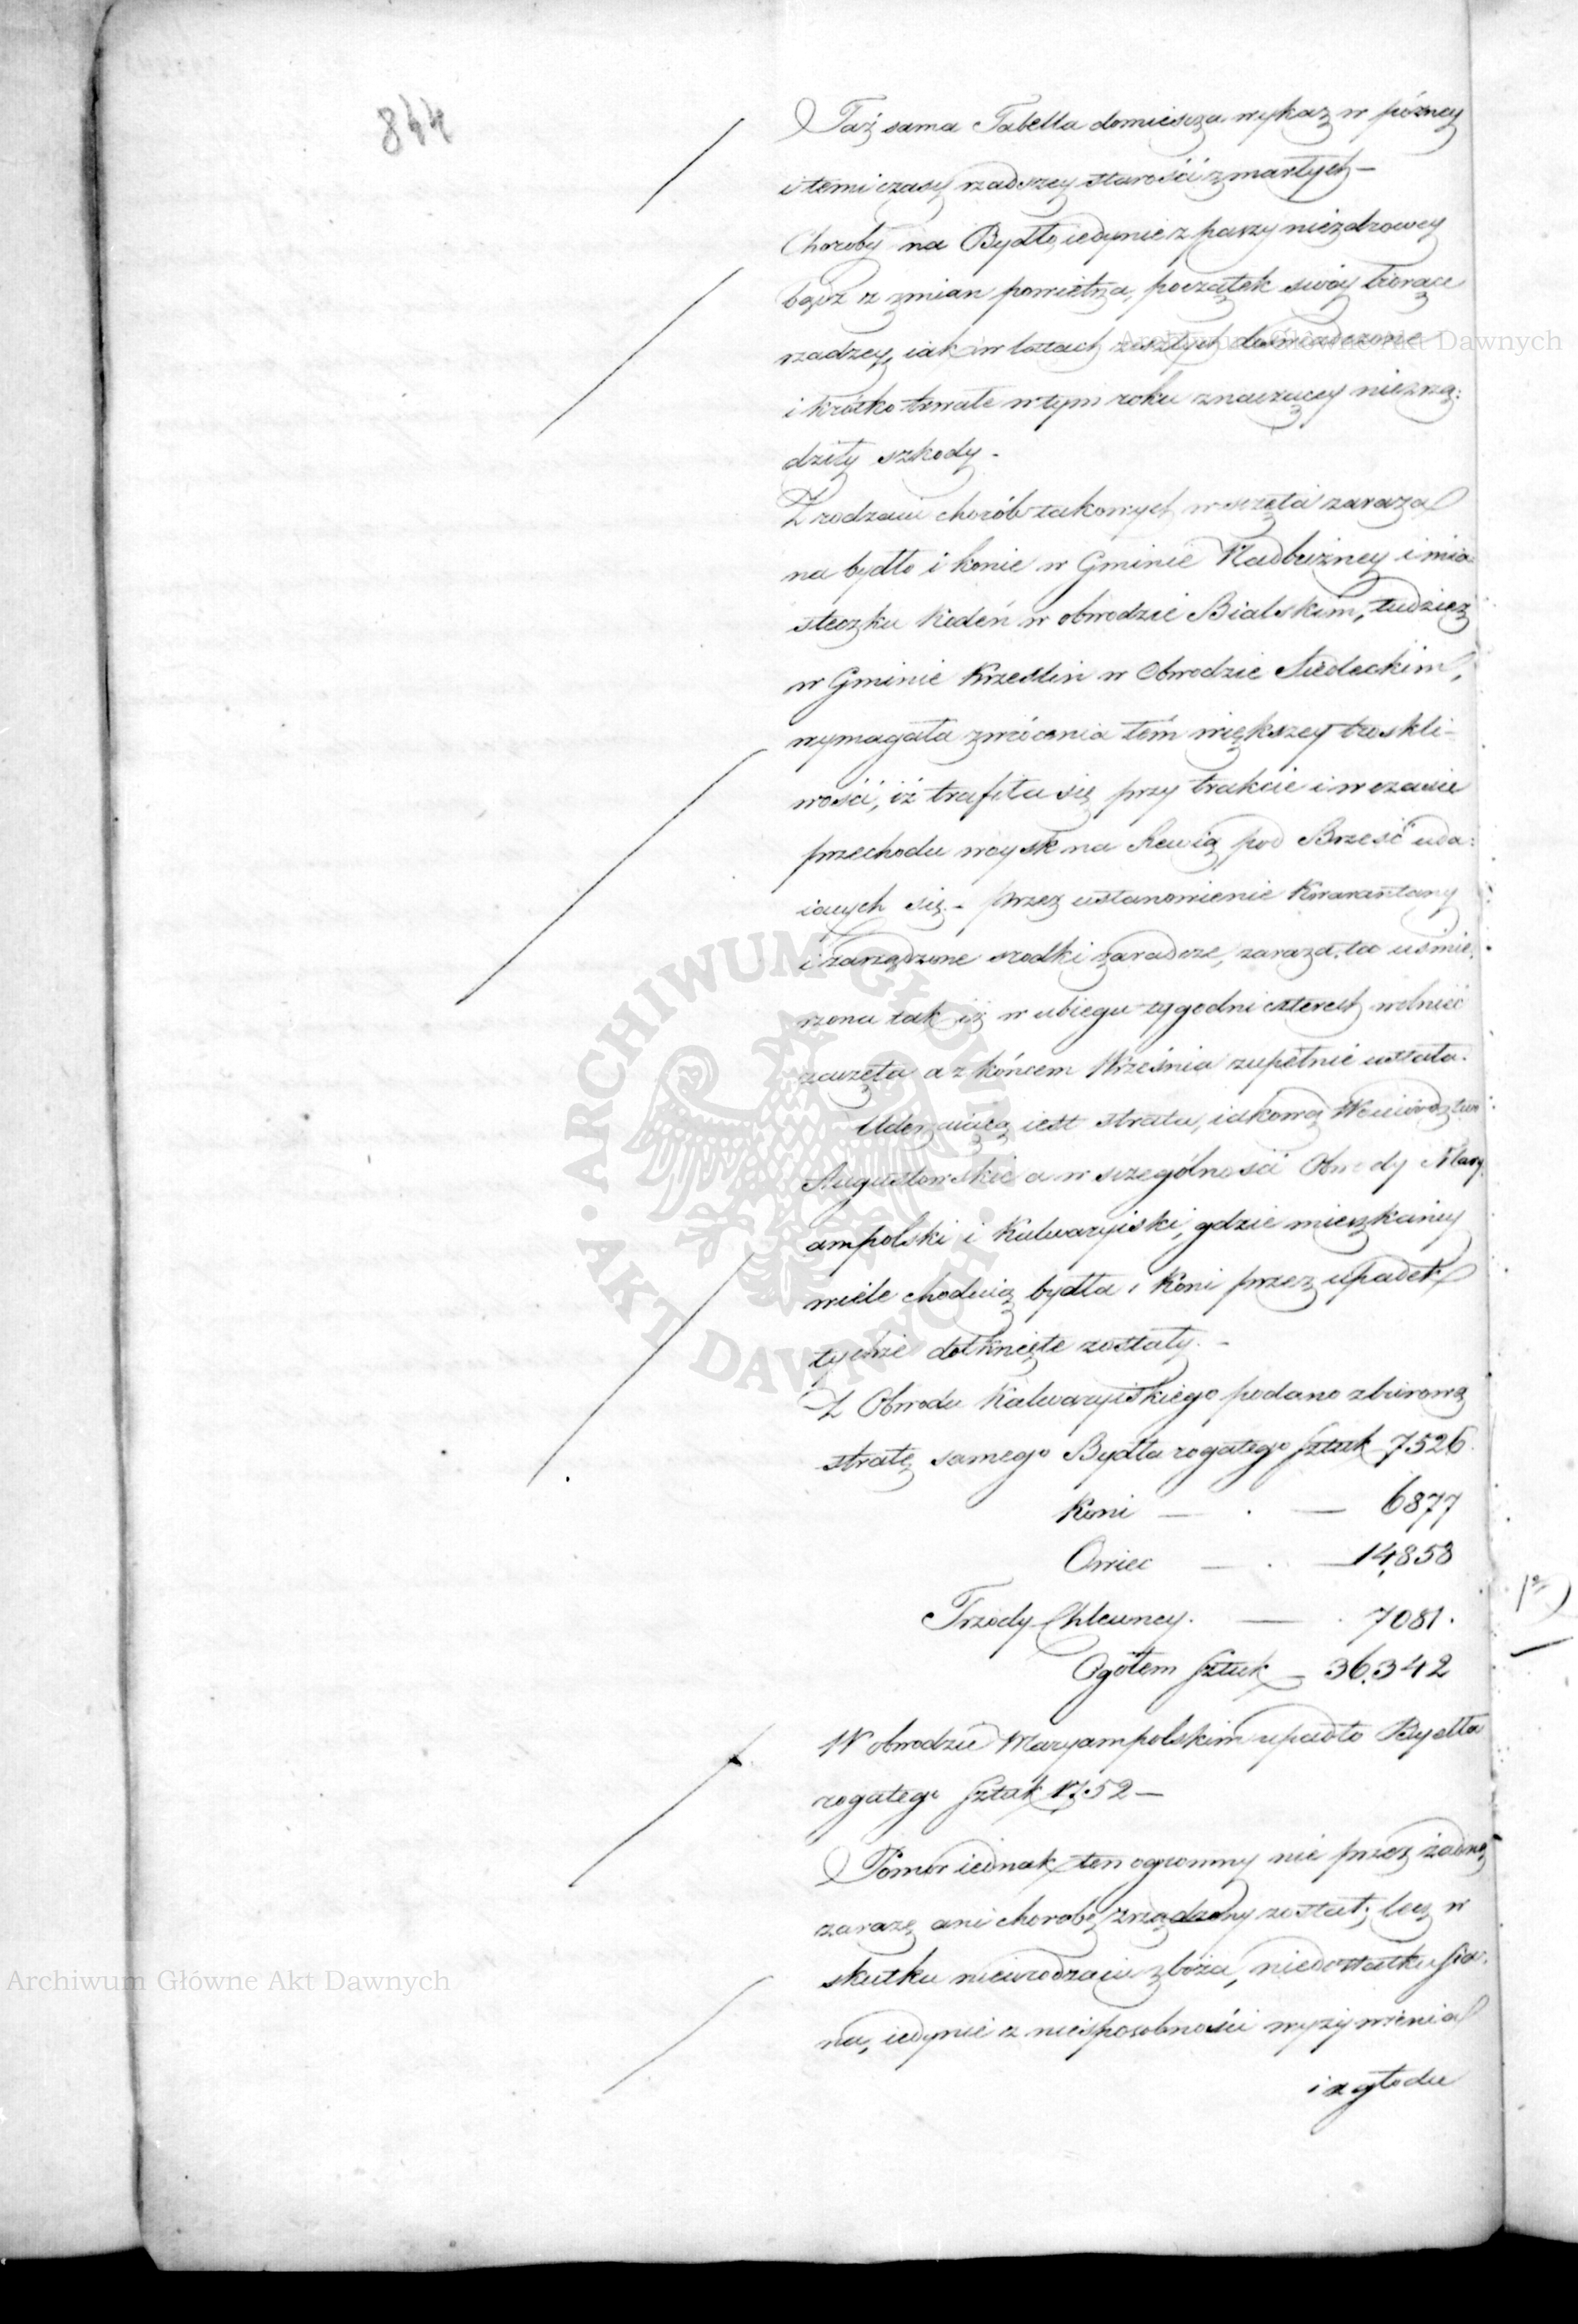 844
Taż sama Tabella domieszcza wykaz w późney
i temi czasy rzadszey starości zmarłych –
Choroby na Bydło, iedynie z paszy niezdrowey
bądź z zmian powietrza, początek swóy biorące
rzadzey, iak w latach zeszłych doświadczone
i krótko trwałe w tym roku znaczącey niezrzą:
dziły szkody –
Z rodzaiu chorób takowych wszczęta zaraza
na bydło i konie w Gminie Nadbużney i mia-
steczku Kodeń w obwodzie Bialskim, tudzież
w Gminie Krześlin w Obwodzie Siedleckim,
wymagała zwrócenia tém większey troskli-
wości, iż trafiła się przy trakcie i w czasie
przechodu woysk na Rewią pod Brześć uda:
iących się. – przez ustanowienie Kwarantany
i zarządzone srodki zaradcze, zaraza ta uśmie:
rzona tak iż w ubiegu tygodni czterech wolnieć
zaczęła a z końcem Września zupełnie ustała.
Uderzaiącą iest strata, iakową Woiewództwo
Augustowskie a w szczególności Obwody Mary:
ampolski i Kalwaryiski, gdzie mieszkańcy
wiele chodzą bydła i Koni przez upadek
tychże dotknięte zostały. –
Z Obwodu Kalwaryiskiego podano zbiorową
stratę samego Bydła rogatego sztuk 7526.
Koni — . — 6877
Owiec — . — 14,858
Trzody Chlewney. — . 7081.
Ogółem sztuk – 36,342
W obwodzie Maryampolskim upadło Bydła
rogatego sztuk 1752 —
Pomór iednak ten ogromny nie przez żadną
zarazę ani chorobę zrządzony został; lecz w
skutku nieurodzaiu zboża, niedostatku sia:
na, iedynie z niesposobności wyżywienia
i z głodu
Archiwum Główne Akt Dawnych
Archiwum Główne Akt Dawnych
ARCHIWUM GŁÓWNE
AKT DAWNYCH